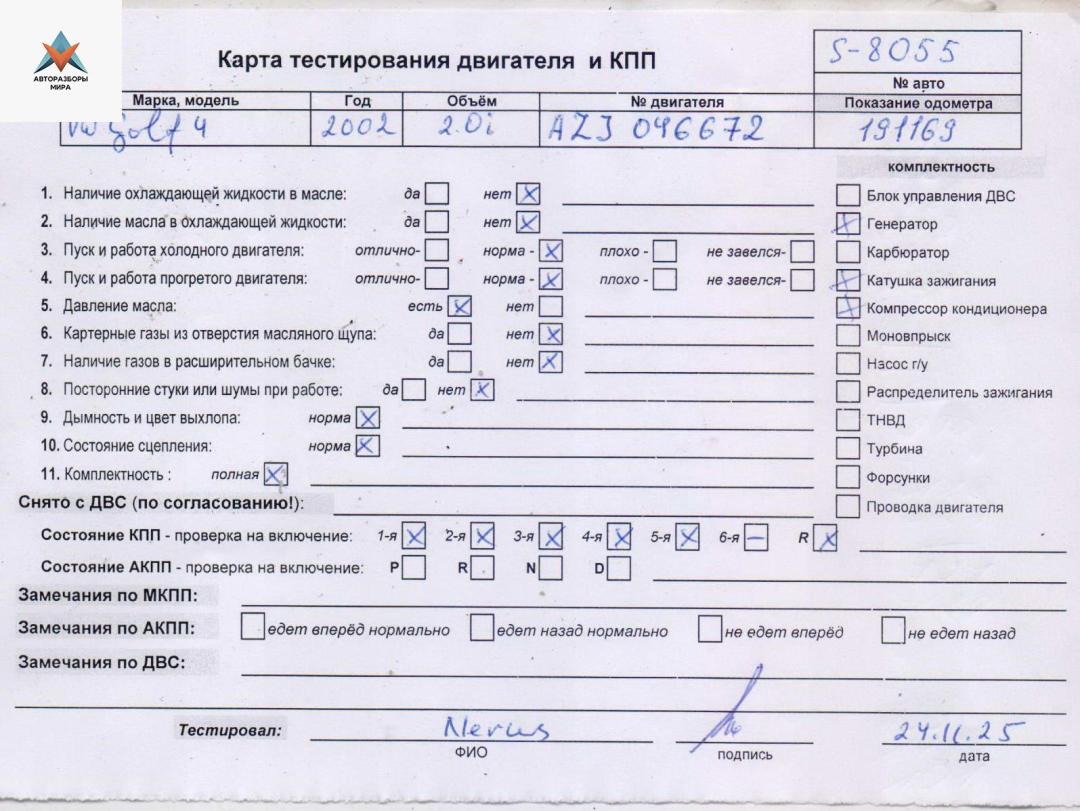 АВТОРАЗБОРЫ
МИРА
Карта тестирования двигателя и КПП
S-8055
№ авто
Марка, модель Год Объём № двигателя Показание одометра
VW Golf 4 2002 2.0i AZJ 046672 191169
комплектность
1. Наличие охлаждающей жидкости в масле: да нет X
Блок управления ДВС
2. Наличие масла в охлаждающей жидкости: да нет X
X Генератор
3. Пуск и работа холодного двигателя: отлично- норма - X плохо - не завелся-
Карбюратор
4. Пуск и работа прогретого двигателя: отлично- норма - X плохо - не завелся-
X Катушка зажигания
5. Давление масла: есть X нет
X Компрессор кондиционера
6. Картерные газы из отверстия масляного щупа: да нет X
Моновпрыск
7. Наличие газов в расширительном бачке: да нет X
Насос г/у
8. Посторонние стуки или шумы при работе: да нет X
Распределитель зажигания
9. Дымность и цвет выхлопа: норма X
ТНВД
10. Состояние сцепления: норма X
Турбина
11. Комплектность : полная X
Форсунки
Снято с ДВС (по согласованию!):
Проводка двигателя
Состояние КПП - проверка на включение: 1-я X 2-я X 3-я X 4-я X 5-я X 6-я – R X
Состояние АКПП - проверка на включение: P R N D
Замечания по МКПП:
Замечания по АКПП: едет вперёд нормально едет назад нормально не едет вперёд не едет назад
Замечания по ДВС:
Тестировал: 24.11.25
ФИО подпись дата